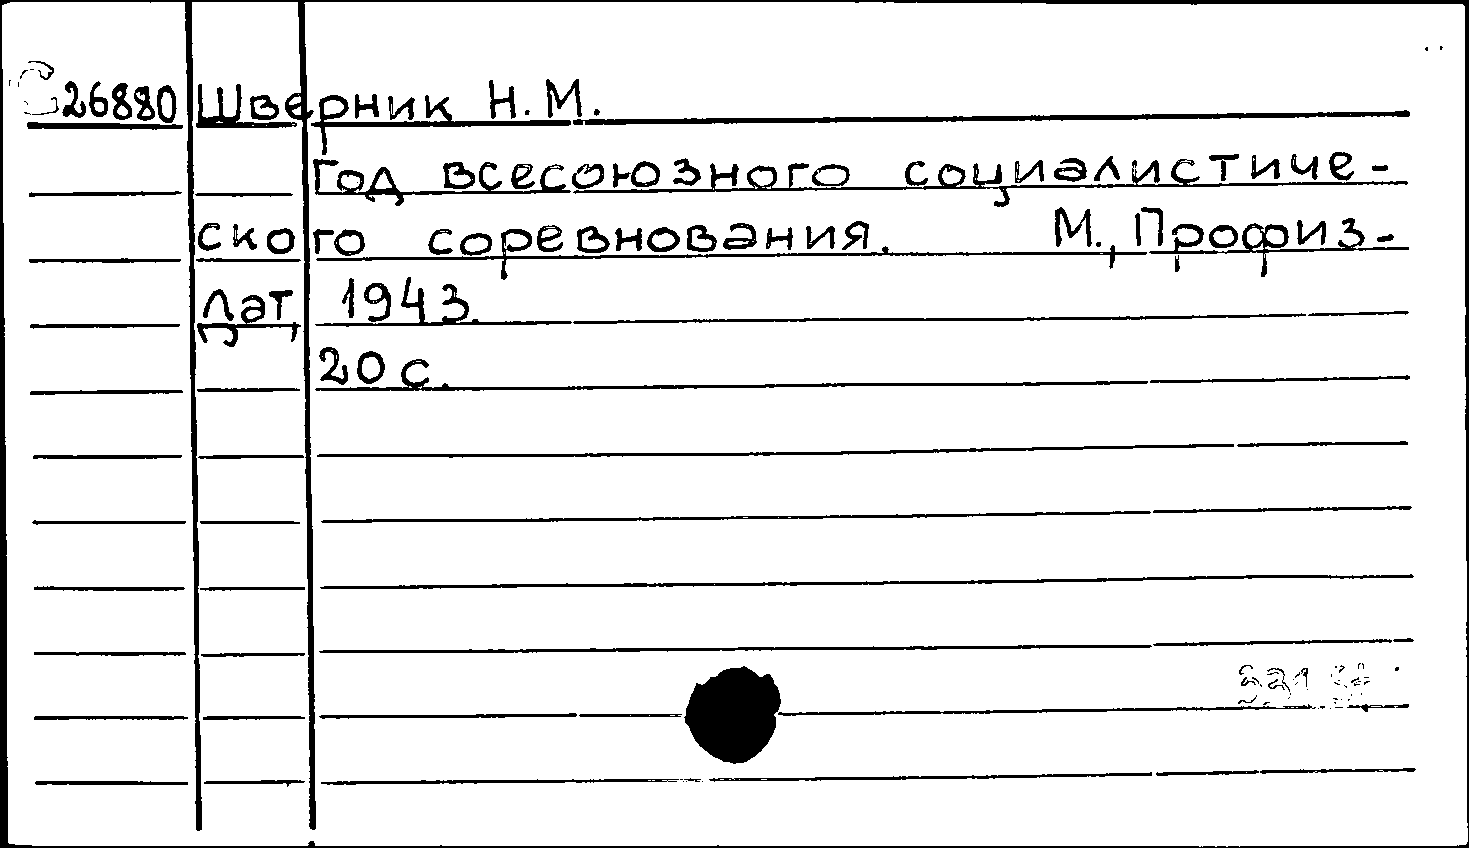 С 26880 Шверник Н.М.
Год всесоюзного социалистиче-
ского соревнования. М., Профиз-
дат, 1943.
20 с.